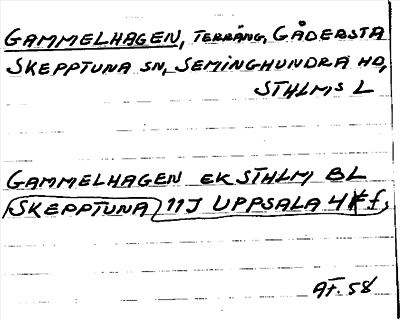 GAMMELHAGEN, TERRÄNG, GÅDERSTA
SKEPPTUNA SN, SEMINGHUNDRA HD,
STHLMS L
GAMMELHAGEN EK STHLM BL
SKEPPTUNA 11J UPPSALA 4 f,
AF. 58